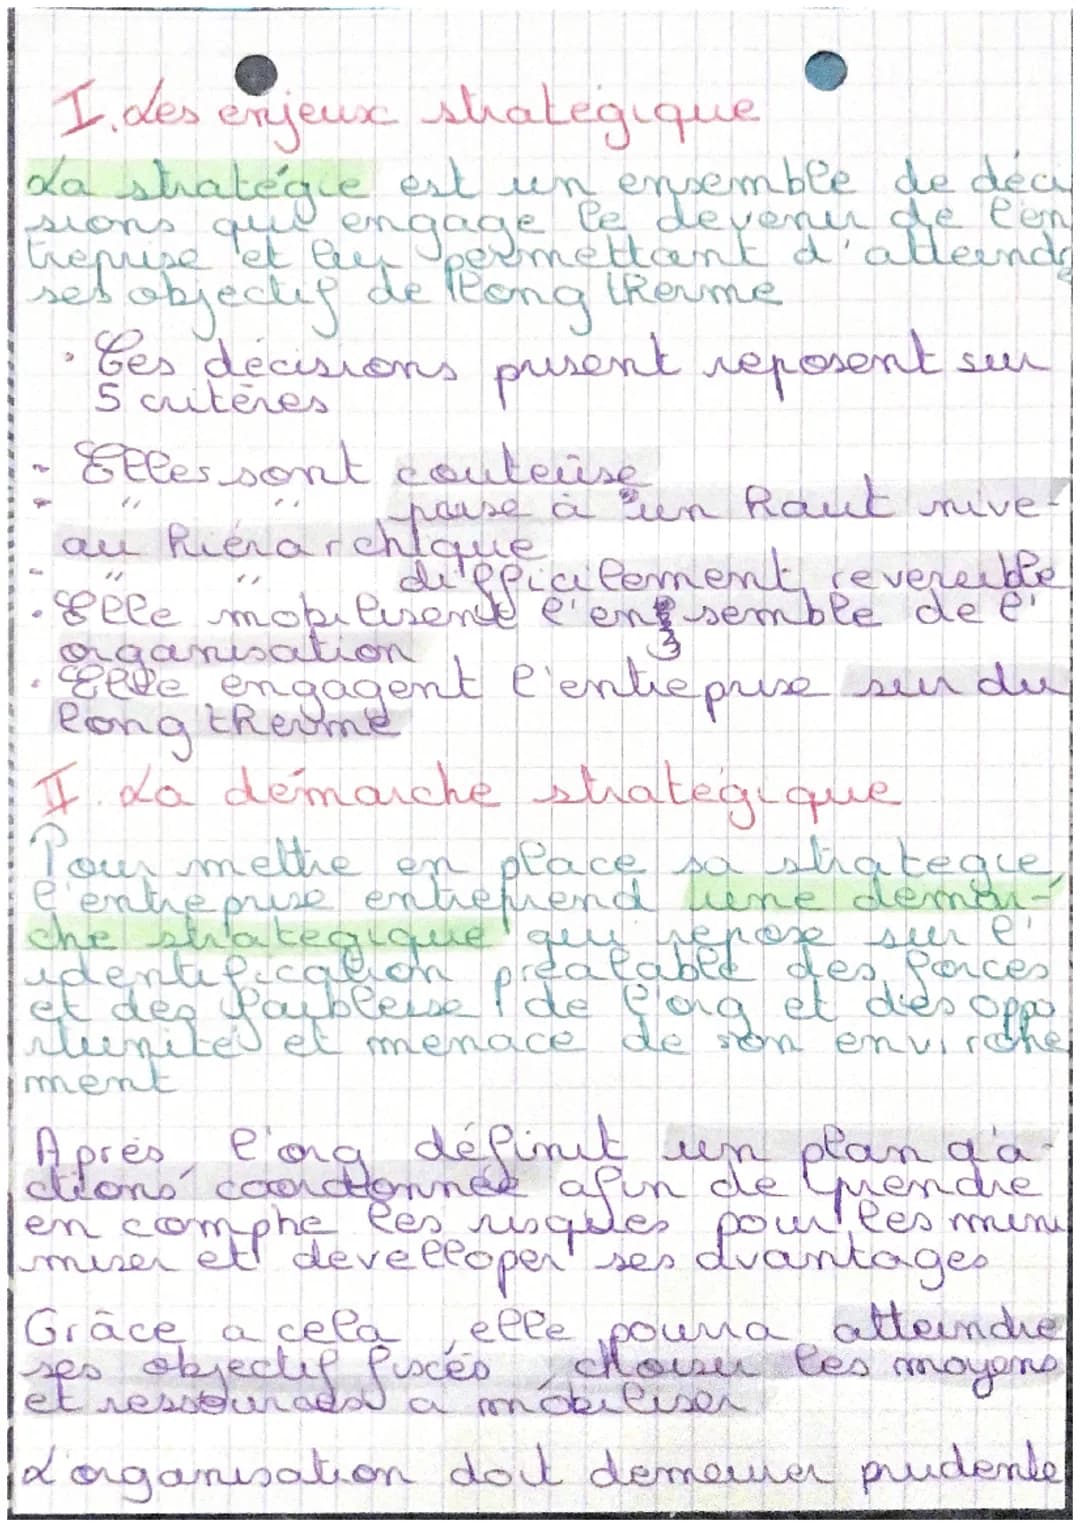 I. Les enjeux stratégique
La stratégie est un ensemble de déci
sions qui engage le devenir de l'en
treprise et lui permettant d'atteindre
ses objectif de long therme
• Ces décisions prisent reposent sur
5 critères
- Elles sont couteûse
- " " prise à un haut nive-
au hiérarchique
- " " difficilement revereible
• Elle mobilisent l'ensemble de l'
organisation
• Elle engagent l'entreprise sur du
long therme
II. La démarche stratégique
Pour mettre en place sa strategie,
l'entreprise entreprend une démar-
che strategique qui repose sur l'
identification préalable des forces
et des faiblesse de l'org et des oppo
rtunités et menace de son environe
ment
Après, l'org définit un plan d'a-
ctions coordonnée afin de prendre
en compte les risques pour les mini
miser et develloper ses avantages
Grâce a cela, elle pourra atteindre
ses objectif fixcés, choisir les moyens
et ressources a mobiliser
L'organisation doit demeurer prudente